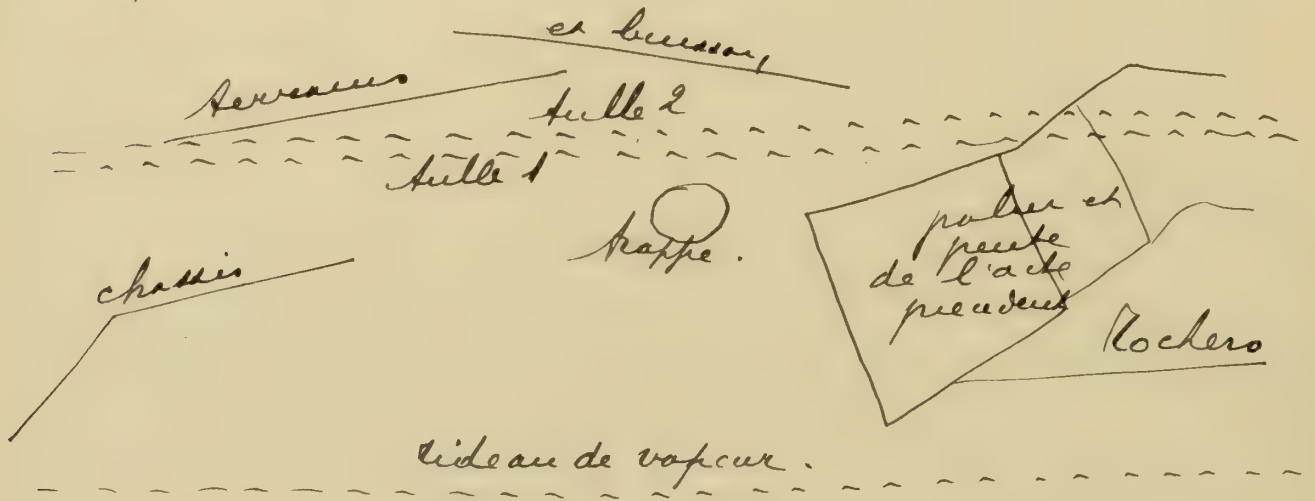 et buisson,
terrains
tulle 2
tulle 1
trappe.
palier et
pente
de l'acte
précédent
chassis
Rochers
rideau de vapeur.